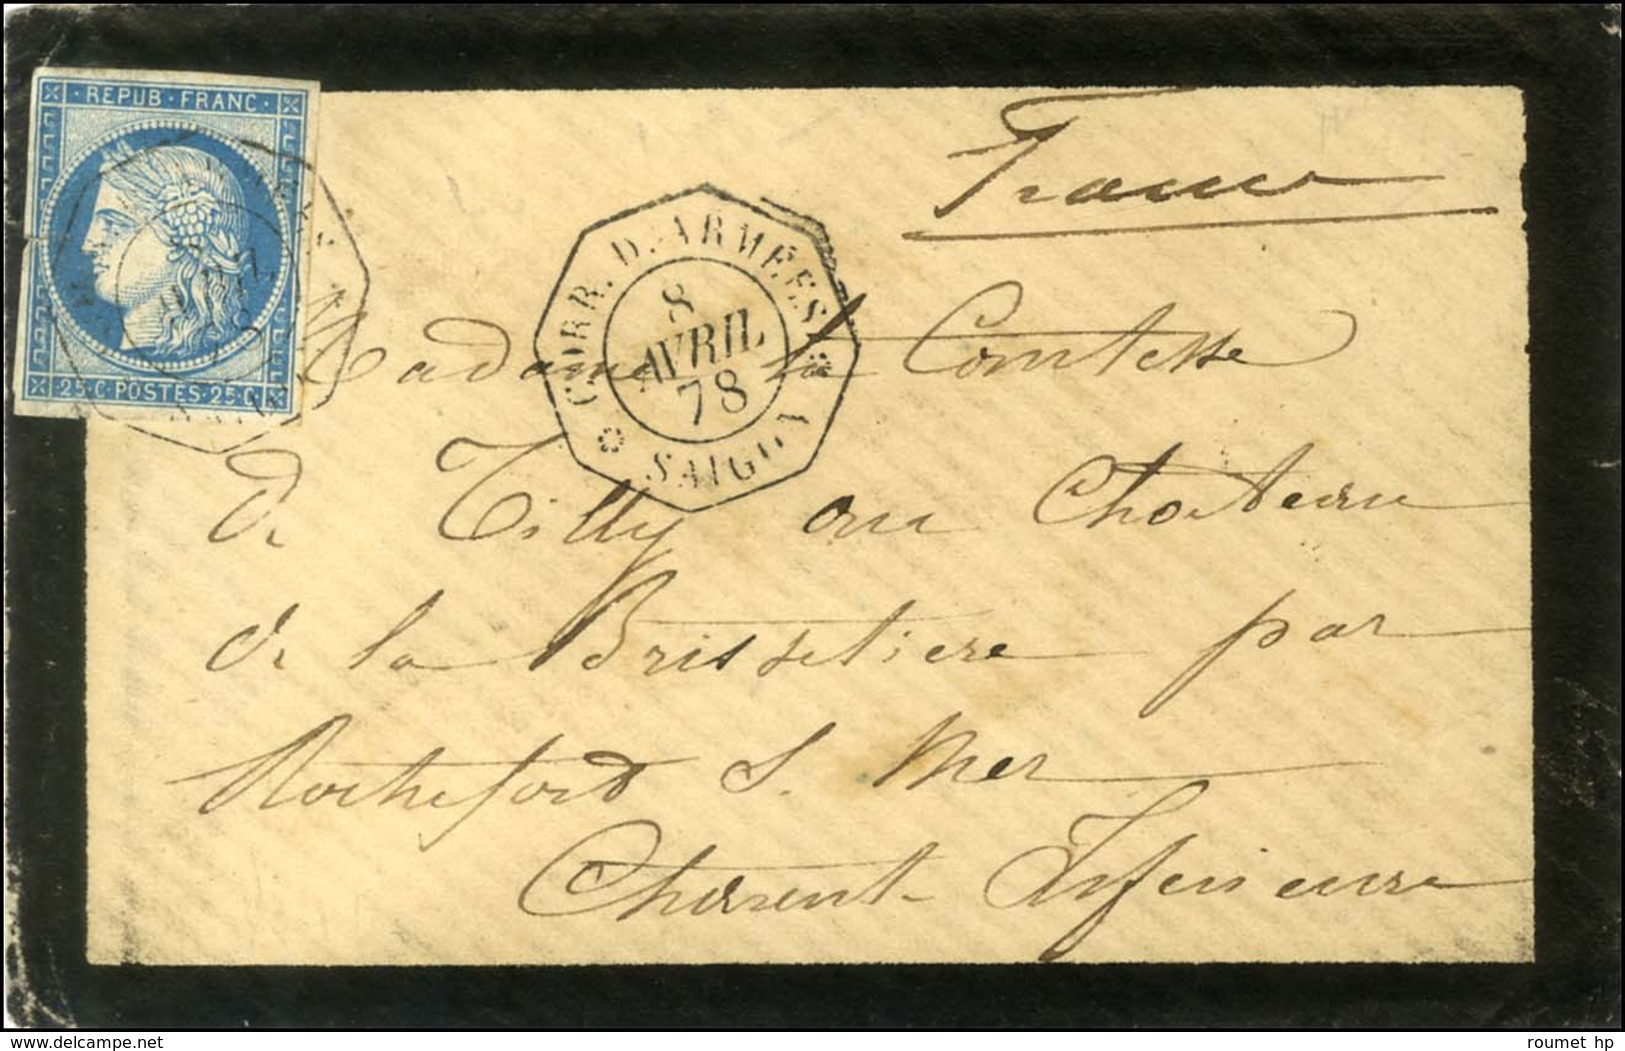 REPUB · FRANC ·
· 25 · C · POSTES · 25 · C ·
France
CORR. D. ARMÉES
8
AVRIL
78
SAIGON
Madame la Comtesse
de Tilly au Chateau
de la Brissetiere par
Rochefort S. Mer
Charente Inferieure
delcampe.net
roumet hp